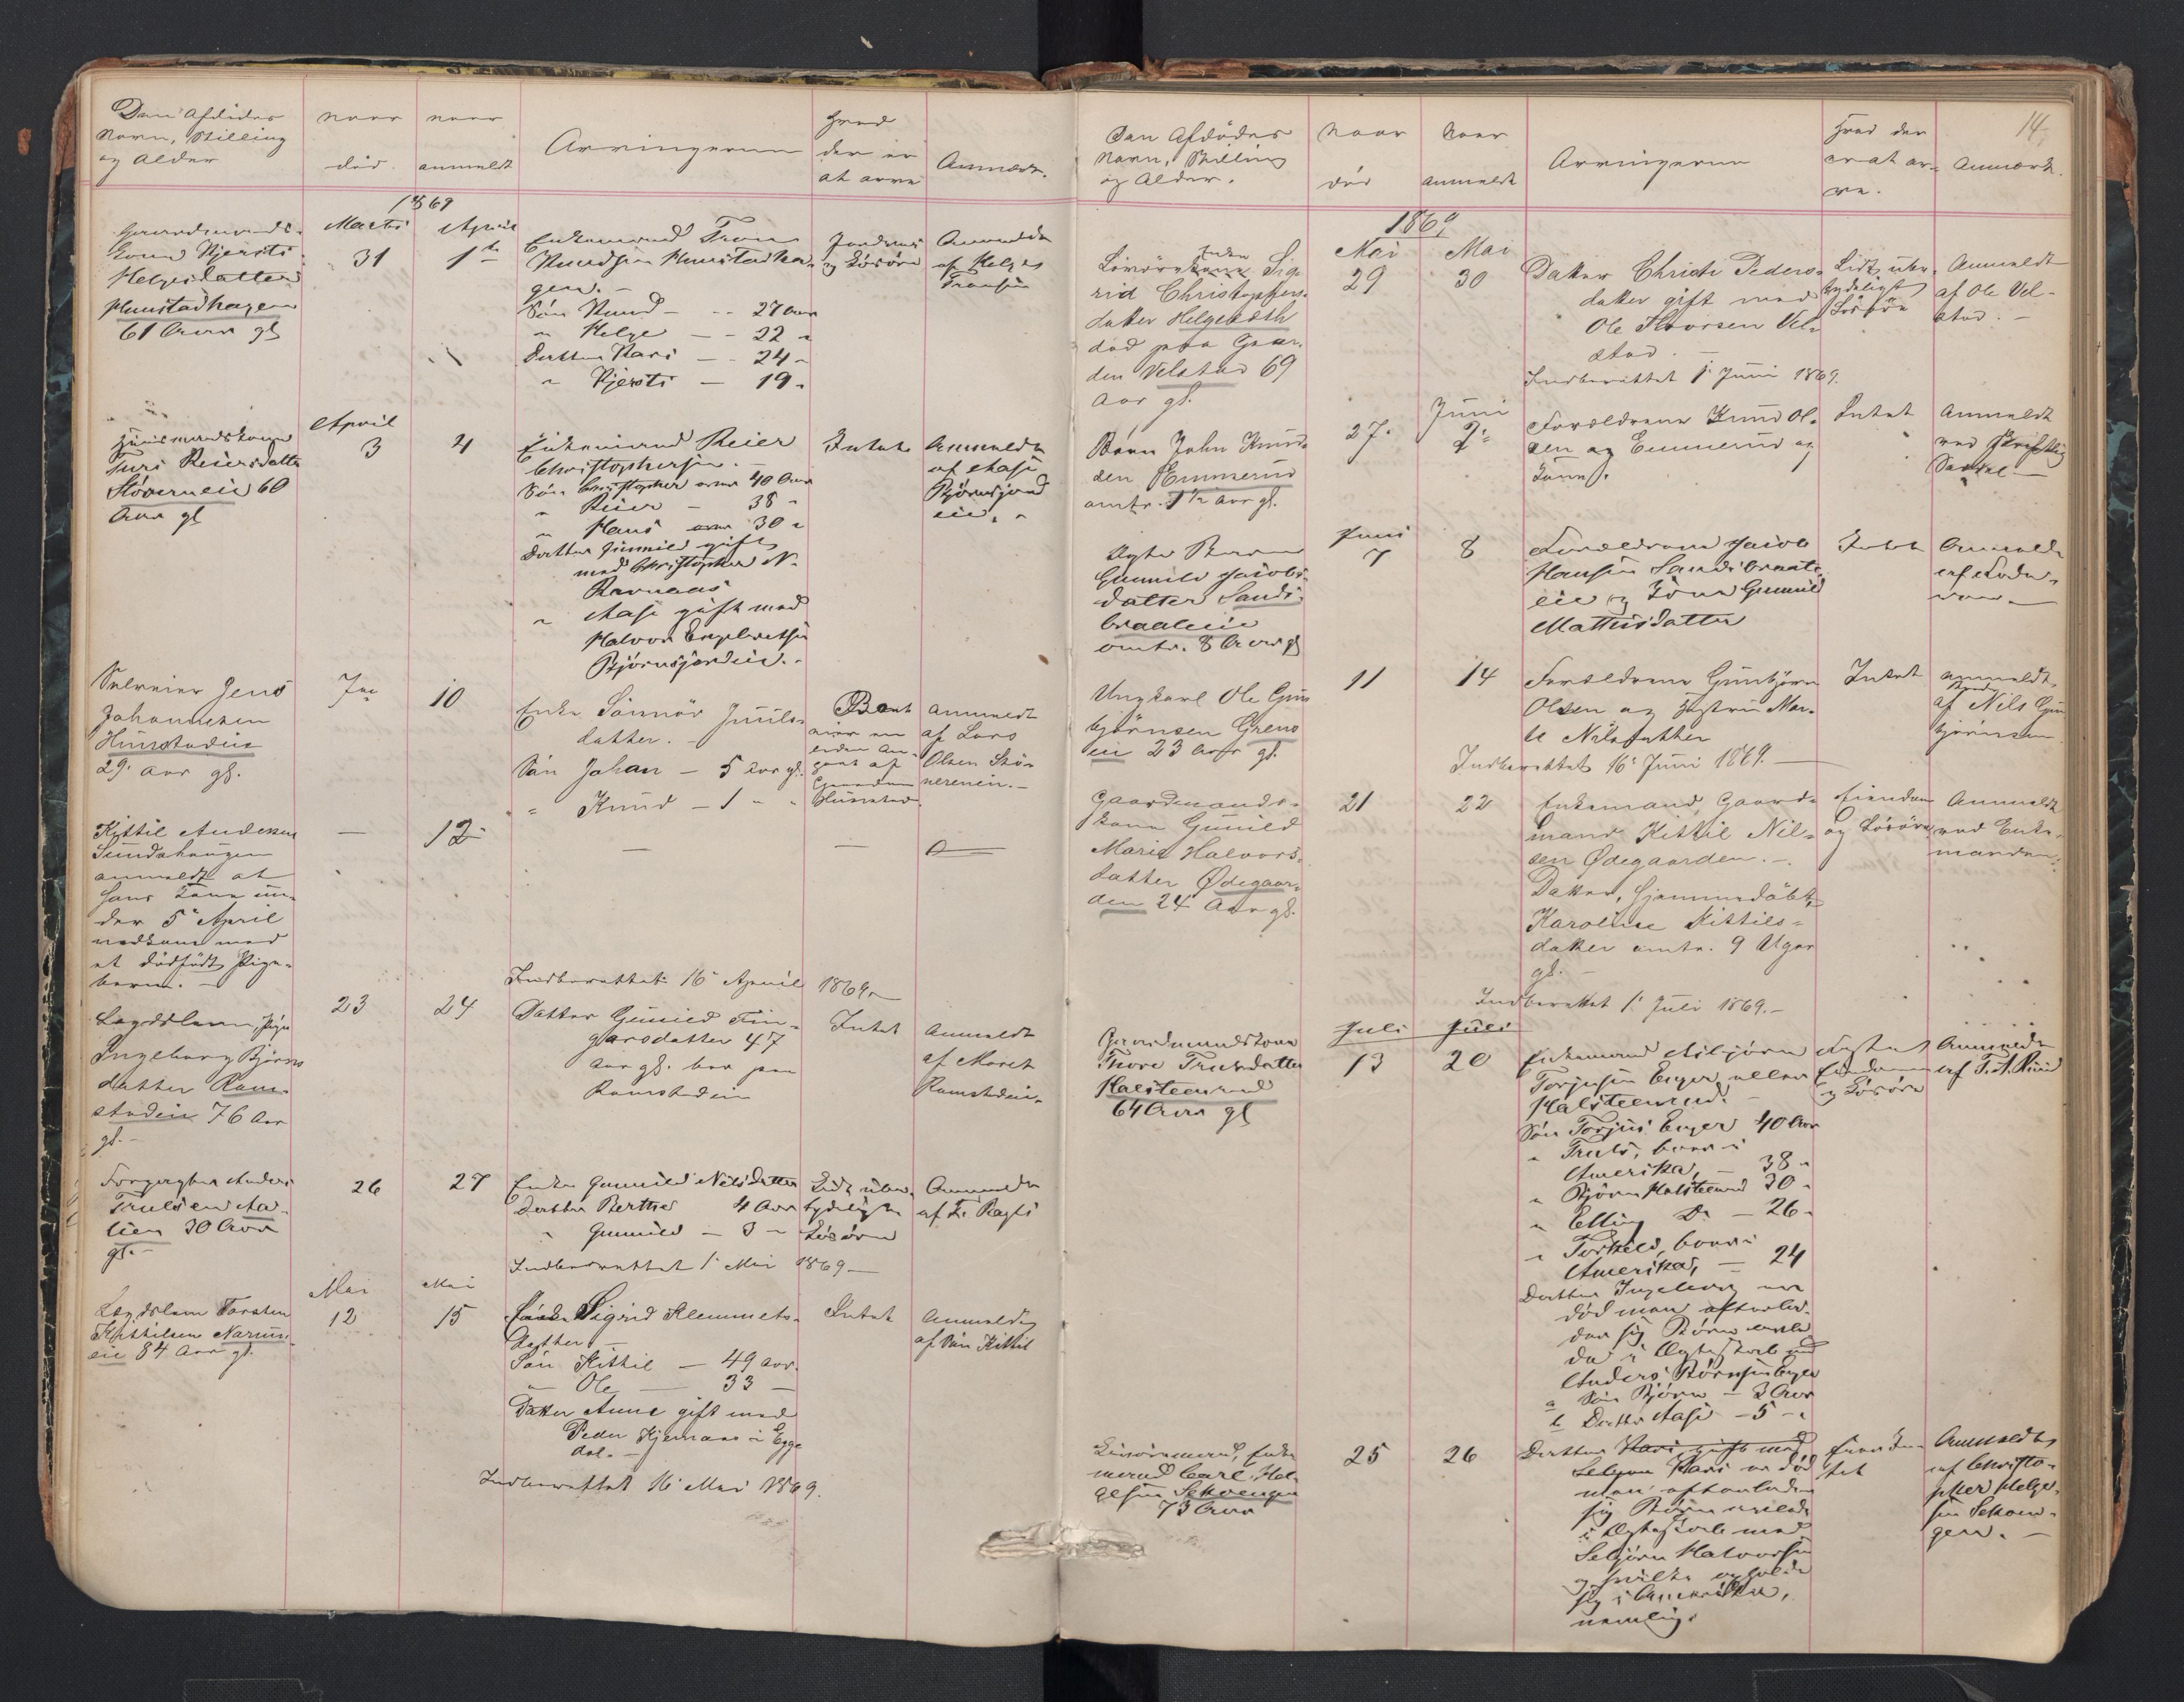 Den Afdødes
Navn, Stilling
og Alder
naar
død.
naar
anmeldt
Arvingerne
Hvad
der er
at arve
Anmærk.
1869
Marts
April
Gaardmands-
kone Kjersti
Helgesdatter
Hunstadhagen
61 Aar gl
31
1ste
Enkemand Tron
Knudsen Hunstadha-
gen.-
Søn Knud - - - 27 Aar
" Helge - - 22 "
Datter Kari - - 24 "
" Kjersti - 19 "
Jordgods
og Løsøre
Anmeldt
af Helge
Tronsen
April
Huusmandskone
Turi Reiersdatter
Støverneie 60
Aar gl
3
4
Enkemand Reier
Christophersen.-
Søn Christopher 40 Aar
" Reier - 38 "
" Hans 30 "
Datter Gunnild gift
med Christopher N.
Ravnaas
" Aase gift med
Halvor Engebretsen
Bjørnsjordeie.-
Intet
Anmeldt
af Aase
Bjørnsjord
eie. "
Selveier Jens
Johannesen
Hunstadeie
29 Aar gl.
10
Enke Sønnøv Juuls-
datter.-
Søn Johan - 5 Aar gl.
" Knud - 1 " "
Hunstad
Anmeldt
af Lars
Olsen Stø-
verneeie.-
Kittil Andersen
Sundahaugen
anmeldt at
hans Kone un-
der 5te April
nedkom med
et dødfødt Pige-
barn.-
-
12
-
-
Indberettet 16 April 1869.-
Lægdslem, Pige
Ingeborg Bjørns
datter Ram-
stadeie 76 Aar
gl.-
23
24
Datter Gunild Fin-
garsdatter 47
Aar gl. bor paa
Ramstadeie
Intet
Anmeldt
af Maret
Ramstadeie.
Forpagter Anders
Trulsen Aa-
lien 30 Aar
gl.-
26
27
Enke Gunnild Nilsdatter
Datter Berthe 4 Aar
" Gunnild - 3 "
Lidt ube-
tydeligt
Løsøre
Anmeldt
af T. Ragli
Indberettet 1 Mai 1869-
Mai
Mai
Lægdslem Torsten
Kittilsen Narum-
eie 84 Aar gl.
12
15
Enke Sigrid Klemmets-
datter.-
Søn Kittil - 49 Aar.
" Ole - 33 -
Datter Anne gift med
Peder Kjemaas i Egge
dal.-
Intet
Anmeldt
af Søn Kittil
Indberettet 16 Mai 1869.
14
Den Afdødes
Navn, Stilling
og Alder.
Naar
død
Naar
anmeldt
Arvingerne
Hvad der
er at ar-
ve.
Anmærk.
1869
Mai
Mai
Enke
Sig-
rid Christophers-
datter Helgeseth
død paa Gaar-
den Velstad 69
Aar gl.
29
30
Datter Christi Peders-
datter gift med
Ole Thorsen Vel-
stad.-
Lidt ube-
tydeligt
Løsøre
Anmeldt
af Ole Vel-
stad.-
Indberettet 1 Juni 1869.
Juni
Barn John Knud-
sen Emmerud
omtr. 1 1/2 Aar gl.
27
2
Forældrene Knud Ol-
sen og Emmerud og
Kone.
Intet
Anmeldt
ved skriftlig
Seddel.-
Juni
Ægte Barn
Gunnild Jacobs-
datter Sands-
braateeie
omtr. 8 Aar gl
7
8
Forældrene Jacob
Hansen Sandsbraate-
eie og Kone Gunnild
Mathisdatter
Intet
Anmeldt
af Fade-
ren.-
Ungkarl Ole Gun
bjørnsen Greno
eie 23 Aar gl.
11
14
Forældrene Gunbjørn
Olsen og Hustru Mar-
it Nilsdatter
Intet
anmeldt
af Nils Gun
bjørnsen
Indberettet 16 Juni 1869.-
Gaardmands-
kone Gunild
Marie Halvors-
datter Ødegaar-
den 24 Aar gl.
21
22
Enkemand, Gaard-
mand Kittil Nil-
sen Ødegaarden.-
Datter, hjemmedøbt,
Karoline Kittils-
datter omtr. 9 Uger
gl.-
Eiendom
og Løsøre
Anmeldt
ved Enke-
manden.
Indberettet 1 Juli 1869.-
Juli
Juli
Gaardmandskone
Thore Trulsdatter
Halsteenrud
64 Aar gl
13
20
Enkemand Asbjørn
Torjusen Enger eller
Halsteenrud.-
Søn Torjus Enger 40 Aar
" Truls, boer i
Amerika, - 38 "
" Bjørn Halsteenrud 30 "
" Elling Do - 26 "
" Torkild, boer i
Amerika, - 24
Datter Ingeborg er
død men efterla-
der sig Børn avle-
de i Ægteskab med
Anders Børresen Enger
a Søn Bjørn - 3 Aar
b Datter Aase - 5 - "
Eiendom
og Løsøre
Anmeldt
af T. A. Ruud
Enke
mand Carl Hel-
gesen Sekvengen
73 Aar
25
26
Datter Kari, gift med
Selgjem Kari er død
men efterlader
sig Børn avlede
i Ægteskab med
Selgjem Halvorsen
og hvilke opholde
sig i Amerika,
nemlig:
Anmeldt
af Christo-
pher Helge-
sen Sekven-
gen.-